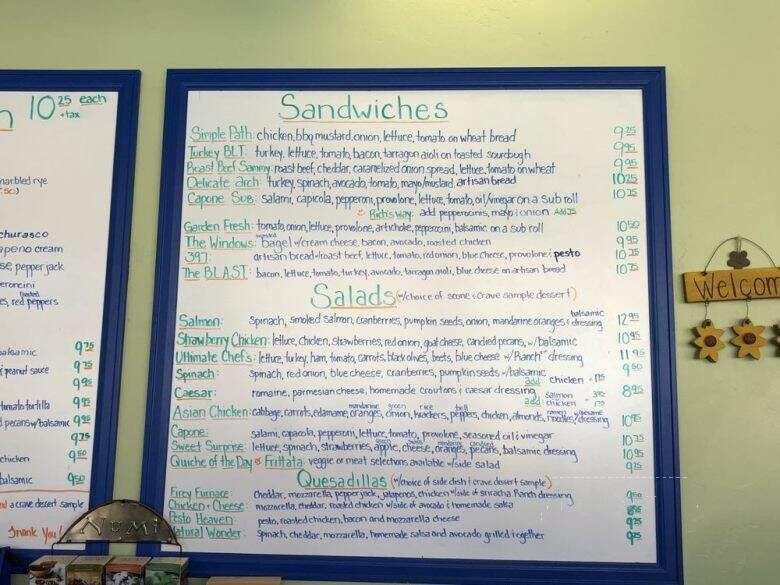 10 25 each
+tax
marbled rye
churasco
apeno cream
se pepper jack
peroncini
es, roasted red peppers
balsamic 9 75
peanut sauce 9 75
9 95
tomato tortilla 9 95
d pecans w/balsamic 9 95
9 75
chicken 9 50
balsamic 9 50
nd a crave dessert sample
Thank You!
Sandwiches
Simple Path: chicken, bbq mustard, onion, lettuce, tomato on wheat bread 9 25
Turkey BLT: turkey, lettuce, tomato, bacon, tarragon aioli on toasted sourdough 9 95
Roast Beef Sammy: roast beef, cheddar, caramelized onion spread, lettuce, tomato on wheat 9 95
Delicate arch: turkey, spinach, avocado, tomato, mayo/mustard, artisan bread 10 25
Capone Sub: salami, capicola, pepperoni, provolone, lettuce, tomato, oil/vinegar on a sub roll 10 25
Rich's way: add pepperocinis, mayo & onion Add .25
Garden Fresh: tomato, onion, lettuce, provolone, artichoke, pepperocini, balsamic on a sub roll 10 50
The Windows: toasted bagel w/cream cheese, bacon, avocado, roasted chicken 9 95
397: artisan bread w/roast beef, lettuce, tomato, red onion, blue cheese, provolone & pesto 10 75
The BLAST: bacon, lettuce, tomato, turkey, avocado, tarragon aioli, blue cheese on artisan bread 10 75
Salads (w/choice of scone & crave sample dessert)
Salmon: spinach, smoked salmon, cranberries, pumpkin seeds, onion, mandarine oranges & balsamic dressing 12 95
Strawberry Chicken: lettuce, chicken, strawberries, red onion, goat cheese, candied pecans, w/balsamic 10 95
Ultimate Chef's: lettuce, turkey, ham, tomato, carrots, black olives, beets, blue cheese w/Ranch dressing 11 95
Spinach: spinach, red onion, blue cheese, cranberries, pumpkin seeds w/balsamic 9 50
add chicken
Caesar: romaine, parmesian cheese, homemade croutons & caesar dressing 8 95
add salmon
chicken
Asian Chicken: cabbage, carrots, edamame, mandarine oranges, green onion, rice krackers, bell peppers, chicken, almonds, ramen noodles w/sesame dressing 10 95
Capone: salami, capacola, pepperoni, lettuce, tomato, provolone, seasoned oil & vinegar 10 75
Sweet Surprise: lettuce, spinach, strawberries, green apple, cheese, mandarine oranges, candied pecans, balsamic dressing 10 95
Quiche of the Day or Frittata: veggie or meat selections available w/side salad 9 25
Quesadillas (w/choice of side dish & crave dessert sample)
Firey Furnace: cheddar, mozzarella, pepper jack, jalapenos, chicken w/side of sriracha Ranch dressing 9 50
Chicken & Cheese: mozzarella, cheddar, roasted chicken w/side of avocado & homemade salsa
Pesto Heaven: pesto, roasted chicken, bacon and mozzarella cheese 9 25
Natural Wonder: spinach, cheddar, mozzarella, homemade salsa and avocado grilled together 9 25
Welcom
Numi